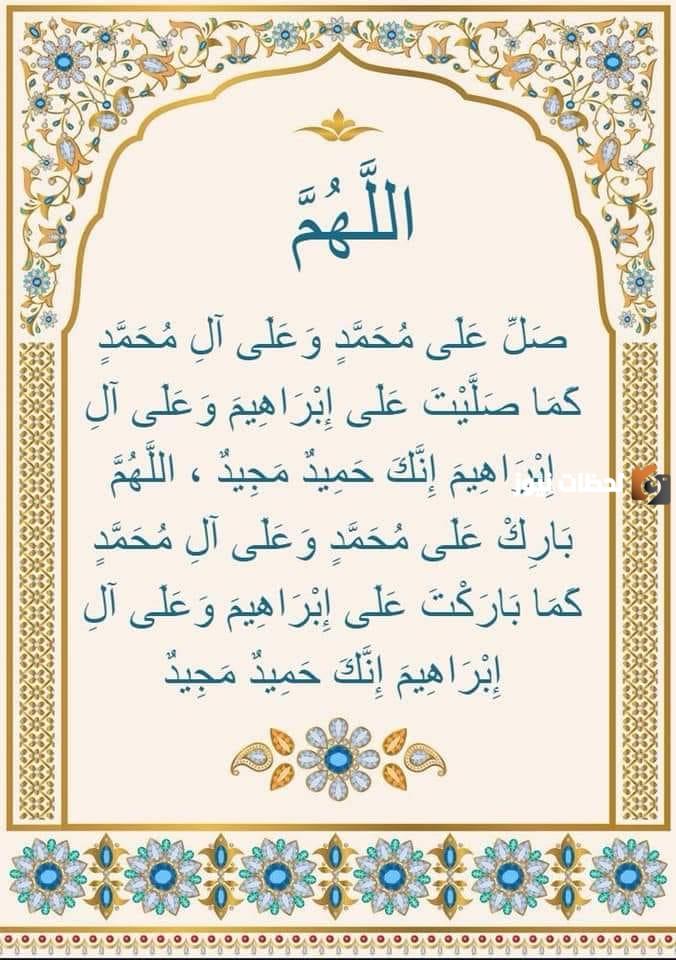 اللَّهُمَّ
صَلِّ عَلَى مُحَمَّدٍ وَعَلَى آلِ مُحَمَّدٍ
كَمَا صَلَّيْتَ عَلَى إِبْرَاهِيمَ وَعَلَى آلِ
إِبْرَاهِيمَ إِنَّكَ حَمِيدٌ مَجِيدٌ ، اللَّهُمَّ
لحظات نيوز
بَارِكْ عَلَى مُحَمَّدٍ وَعَلَى آلِ مُحَمَّدٍ
كَمَا بَارَكْتَ عَلَى إِبْرَاهِيمَ وَعَلَى آلِ
إِبْرَاهِيمَ إِنَّكَ حَمِيدٌ مَجِيدٌ